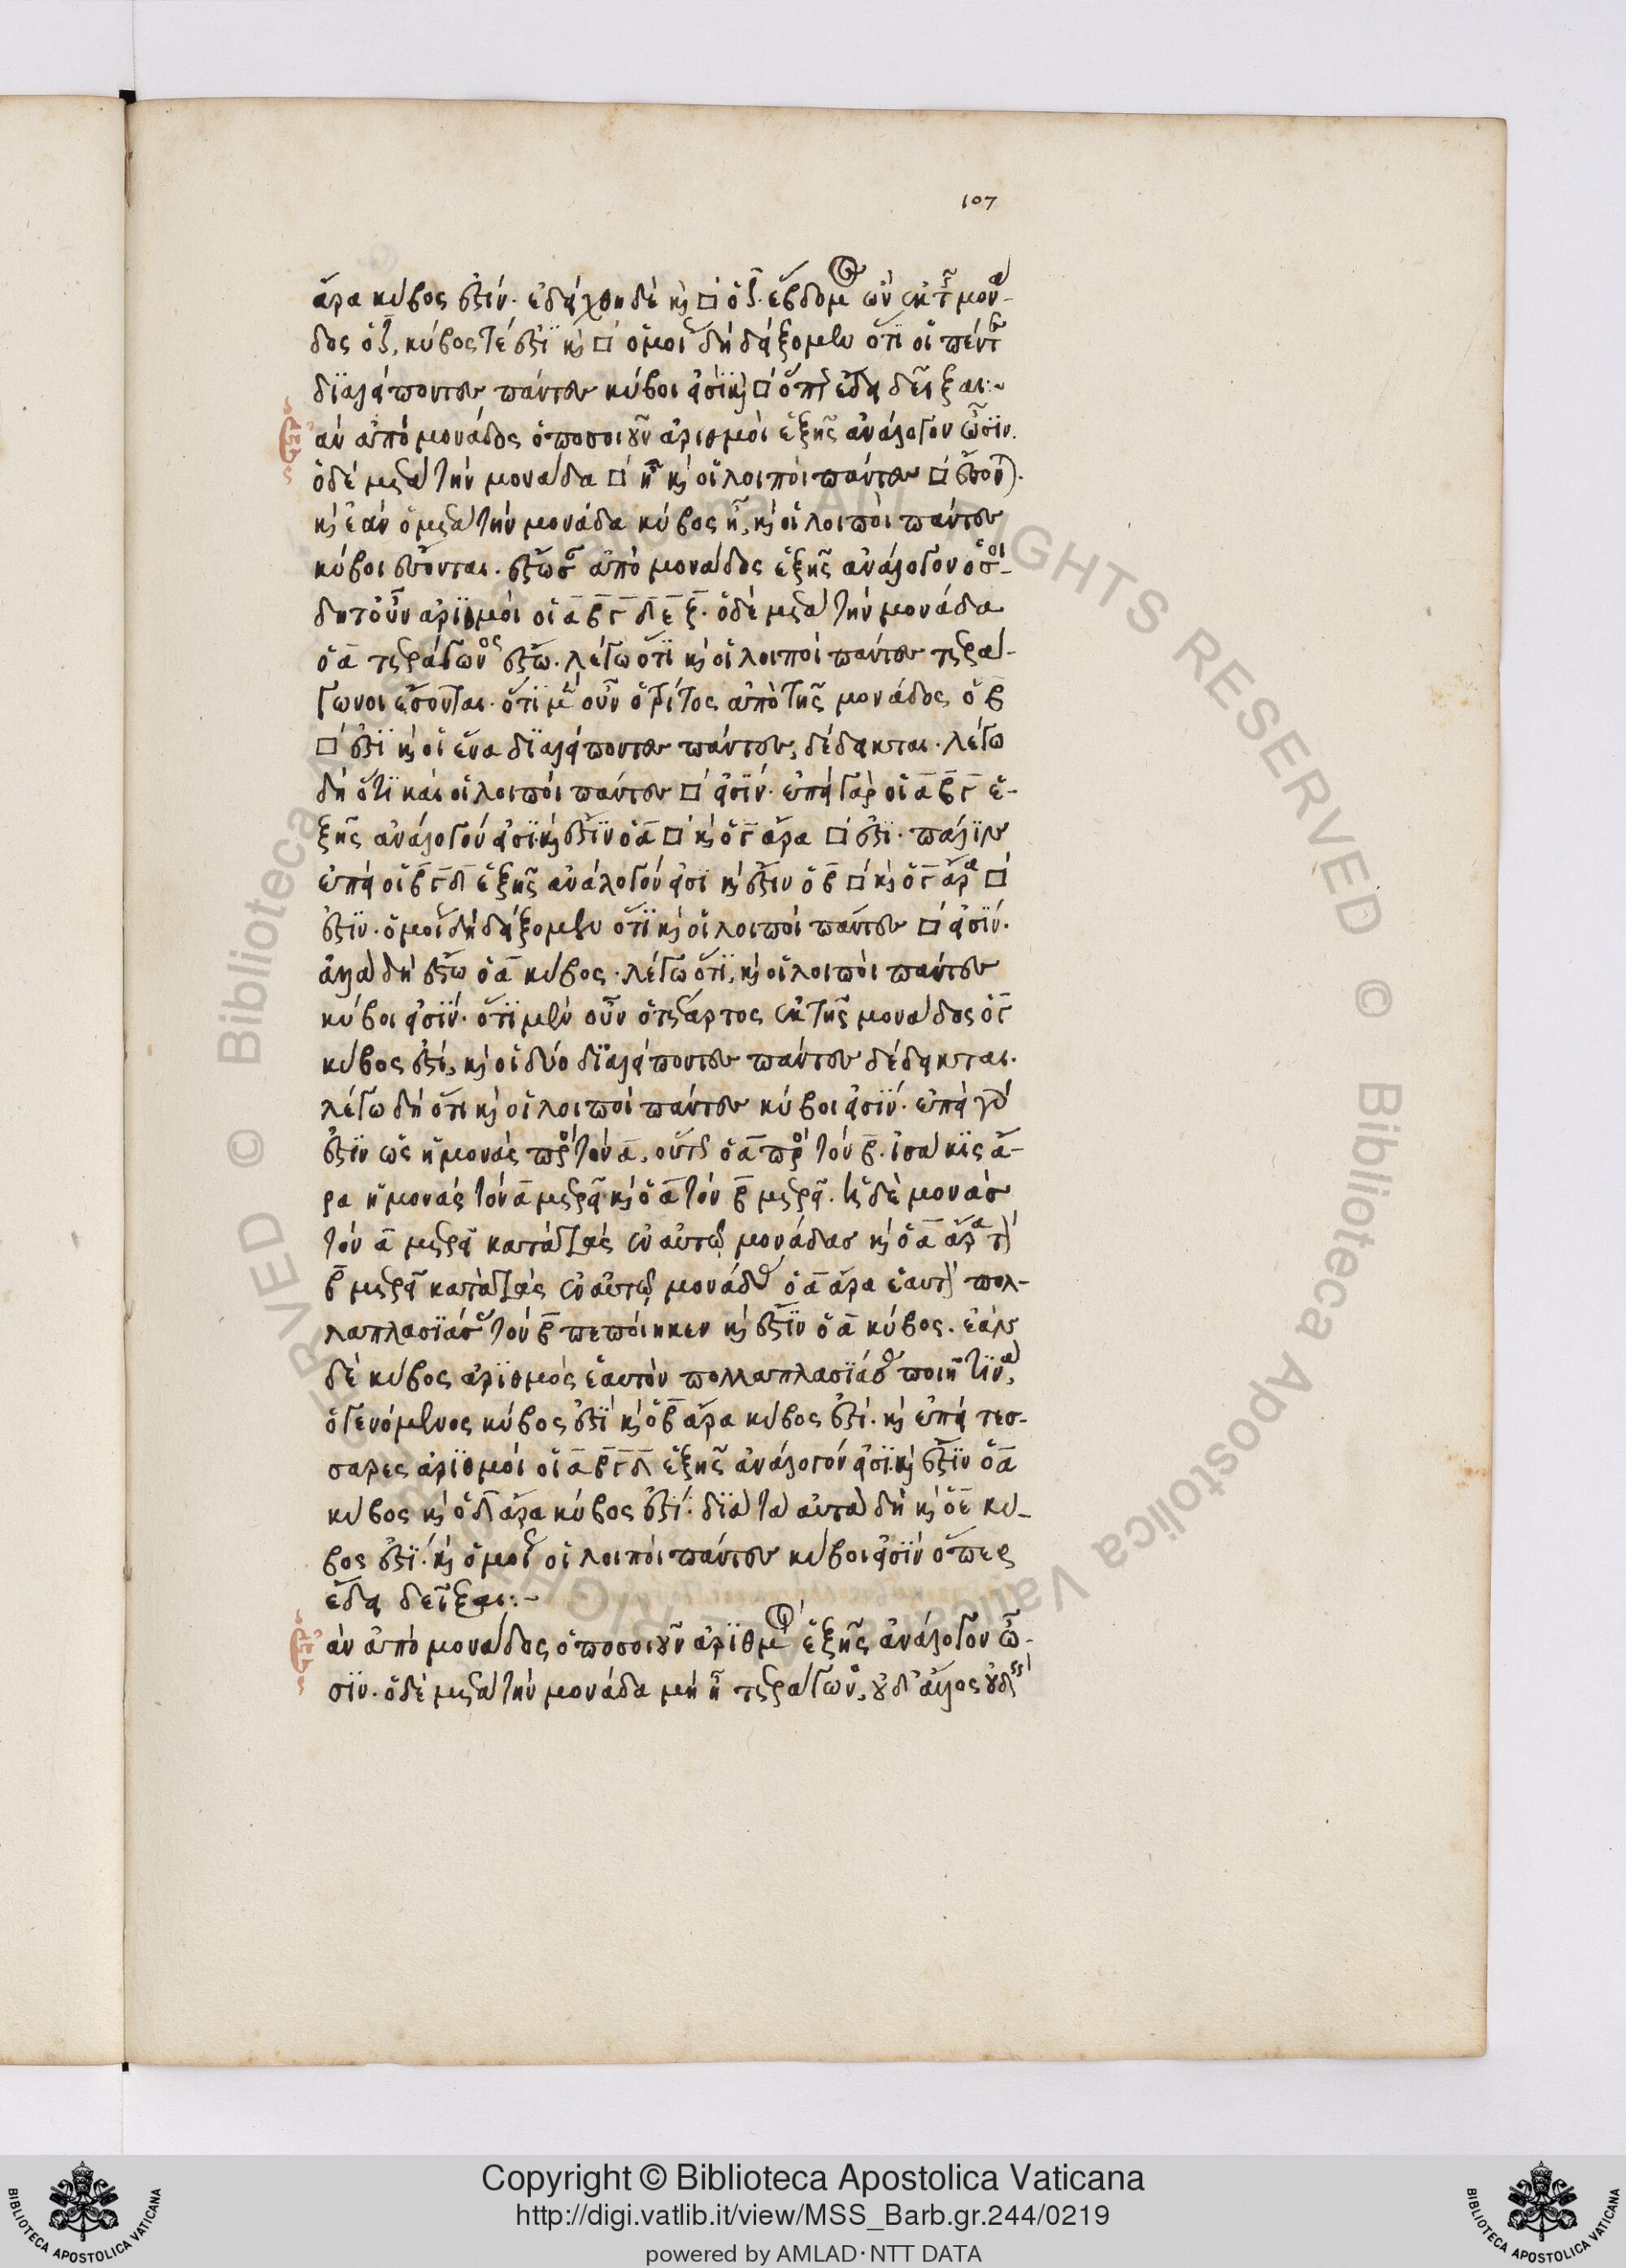 107
ἄρα κύβος ἐστίν· ἐδείχθη δὲ καὶ □ ὁ ζ· ἕβδομος ὢν ἐκ τῆς μονά-
δος ὁ ζ, κύβος τέ ἐστι καὶ □ ὁμοίως δὴ δείξομεν ὅτι οἱ πέντε
διαλείποντες πάντες κύβοι εἰσὶ καὶ □ ὅπερ ἔδει δεῖξαι:~
ἂν ἀπὸ μονάδος ὁποσοιοῦν ἀριθμοὶ ἑξῆς ἀνάλογον ὦσιν.
ὁ δὲ μετὰ τὴν μονάδα □ ᾖ καὶ οἱ λοιποὶ πάντες □ ἔσονται.
καὶ ἐὰν ὁ μετὰ τὴν μονάδα κύβος ᾖ, καὶ οἱ λοιποὶ πάντες
κύβοι ἔσονται. ἔστωσαν ἀπὸ μονάδος ἑξῆς ἀνάλογον ὅσοι-
δητοῦν ἀριθμοὶ οἱ α β γ δ ε ζ. ὁ δὲ μετὰ τὴν μονάδα
ὁ α τετράγωνος ἔστω. λέγω ὅτι καὶ οἱ λοιποὶ πάντες τετρά-
γωνοι ἔσονται. ὅτι μὲν οὖν ὁ τρίτος ἀπὸ τῆς μονάδος ὁ β
□ ἐστι καὶ οἱ ἕνα διαλείποντες πάντες, δέδεικται. λέγω
δὴ ὅτι καὶ οἱ λοιποὶ πάντες □ εἰσίν. ἐπεὶ γὰρ οἱ α β γ ἑ-
ξῆς ἀνάλογόν εἰσι καὶ ἔστιν ὁ α □ καὶ ὁ γ ἄρα □ ἐστι. πάλιν
ἐπεὶ οἱ β γ δ ἑξῆς ἀνάλογόν εἰσι καὶ ἔστιν ὁ β □ καὶ ὁ γ ἄρα □
ἐστιν. ὁμοίως δὴ δείξομεν ὅτι καὶ οἱ λοιποὶ πάντες □ εἰσίν.
ἀλλὰ δὴ ἔστω ὁ α κύβος. λέγω ὅτι, καὶ οἱ λοιποὶ πάντες
κύβοι εἰσίν. ὅτι μὲν οὖν ὁ τέταρτος ἐκ τῆς μονάδος ὁ γ
κύβος ἐστί, καὶ οἱ δύο διαλείποντες πάντες δέδεικται.
λέγω δὴ ὅτι καὶ οἱ λοιποὶ πάντες κύβοι εἰσίν. ἐπεὶ γάρ
ἐστιν ὡς ἡ μονὰς πρὸς τὸν α, οὕτως ὁ α πρὸς τὸν β. ἰσάκις ἄ-
ρα ἡ μονὰς τὸν α μετρεῖ καὶ ὁ α τὸν β μετρεῖ. ἡ δὲ μονὰς
τὸν α μετρεῖ κατὰ τὰς ἐν αὐτῷ μονάδας καὶ ὁ α ἄρα τὸν
β μετρεῖ κατὰ τὰς ἐν αὐτῷ μονάδας ὁ α ἄρα ἑαυτὸν πολ-
λαπλασιάσας τὸν β πεποίηκεν καὶ ἔστιν ὁ α κύβος. ἐὰν
δὲ κύβος ἀριθμὸς ἑαυτὸν πολλαπλασιάσας ποιῇ τινα,
ὁ γενόμενος κύβος ἐστὶ καὶ ὁ β ἄρα κύβος ἐστί. καὶ ἐπεὶ τεσ-
σαρες ἀριθμοὶ οἱ α β γ δ ἑξῆς ἀνάλογόν εἰσι καὶ ἔστιν ὁ α
κύβος καὶ ὁ δ ἄρα κύβος ἐστί. διὰ τὰ αὐτὰ δὴ καὶ ὁ ε κύ-
βος ἐστί. καὶ ὁμοίως οἱ λοιποὶ πάντες κύβοι εἰσίν ὅπερ
ἔδει δεῖξαι:~
ἂν ἀπὸ μονάδος ὁποσοιοῦν ἀριθμοὶ ἑξῆς ἀνάλογον ὦ-
σιν. ὁ δὲ μετὰ τὴν μονάδα μὴ ᾖ τετράγωνος, οὐδ' ἄλλος οὐδεὶς
Copyright © Biblioteca Apostolica Vaticana
http://digi.vatlib.it/view/MSS_Barb.gr.244/0219
powered by AMLAD·NTT DATA